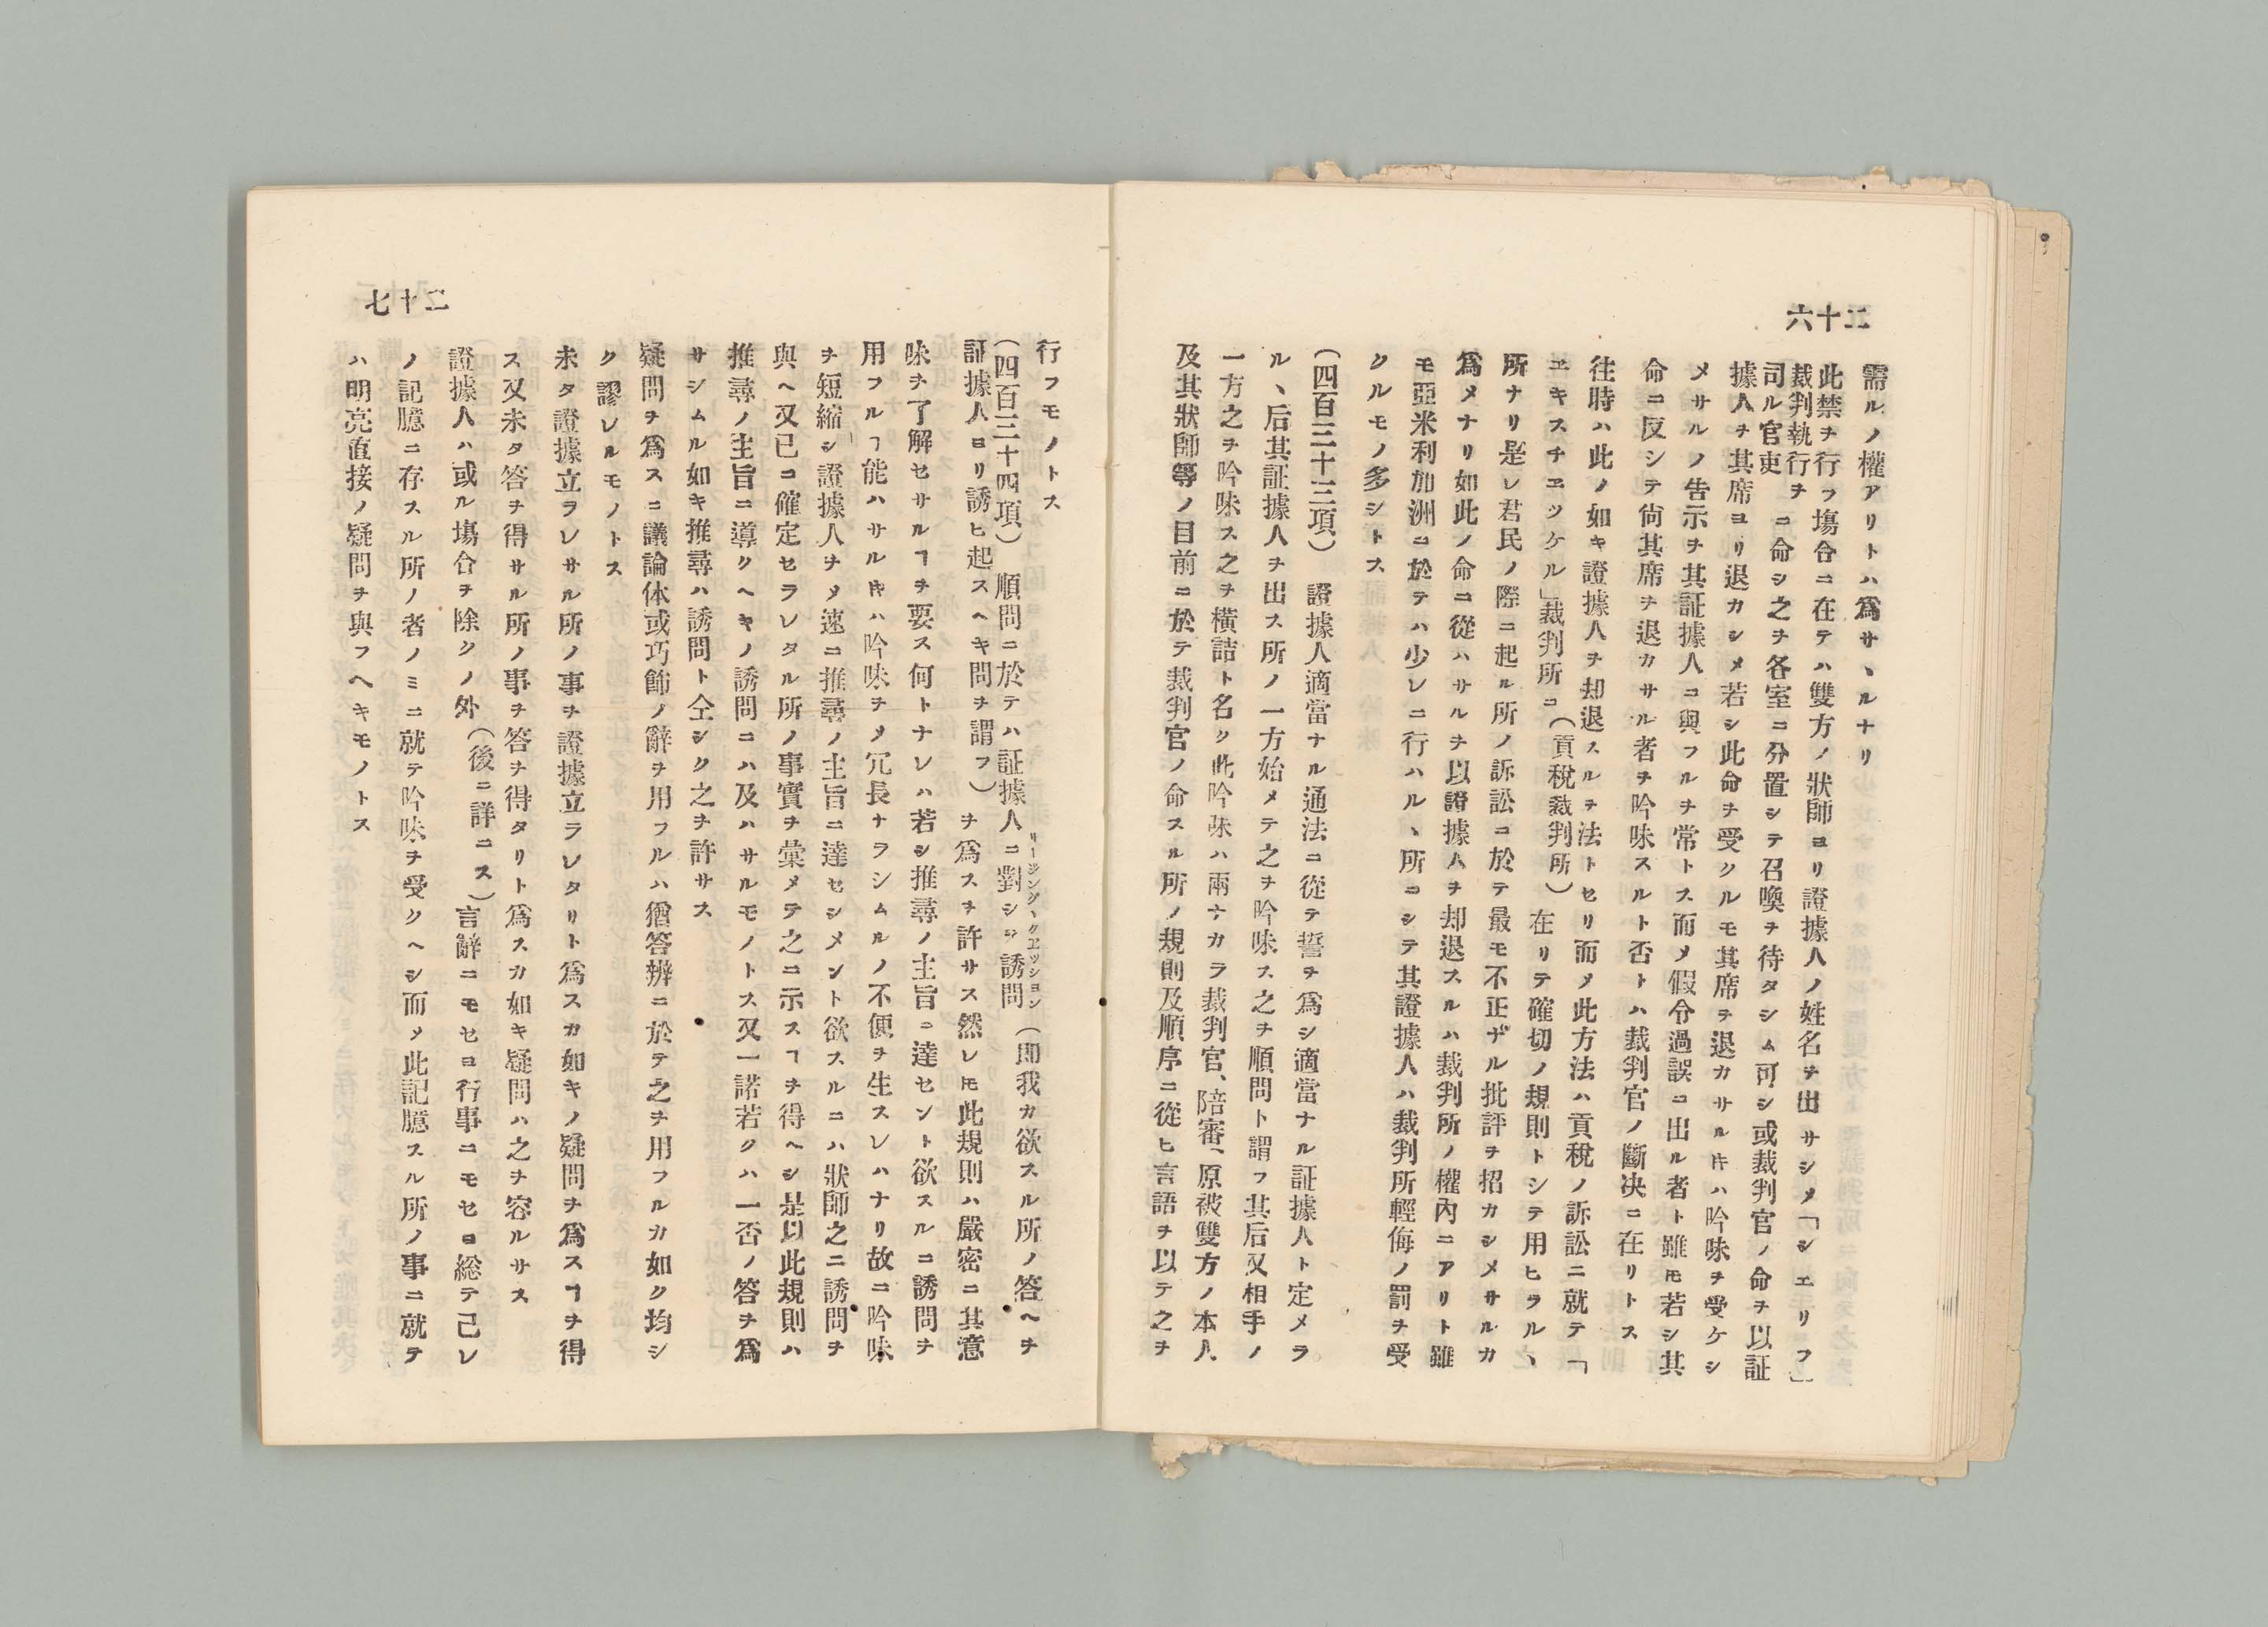 二十六
需ルノ權アリトハ爲サヽルナリ
此禁ヲ行フ塲合ニ在テハ雙方ノ狀師ヨリ證據人ノ姓名ヲ出サシメ「シエリフ」
裁判執行ヲ
司ル官吏
ニ命シ之ヲ各室ニ分置シテ召喚ヲ待タシム可シ或裁判官ノ命ヲ以証
據人ヲ其席ヨリ退カシメ若シ此命ヲ受クルモ其席ヲ退カサルキハ吟味ヲ受ケシ
メサルノ告示ヲ其証據人ニ與フルヲ常トス而メ假令過誤ニ出ル者ト雖モ若シ其
命ニ反シテ尙其席ヲ退カサル者ヲ吟味スルト否トハ裁判官ノ斷决ニ在リトス
往時ハ此ノ如キ證據人ヲ却退スルヲ法トセリ而メ此方法ハ貢稅ノ訴訟ニ就テ「
ヱキスチヱッケル」裁判所ニ(貢稅裁判所)在リテ確切ノ規則トシテ用ヒラルヽ
所ナリ是レ君民ノ際ニ起ル所ノ訴訟ニ於テ最モ不正ザル批評ヲ招カシメサルカ
爲メナリ如此ノ命ニ從ハサルヲ以證據人ヲ却退スルハ裁判所ノ權內ニアリト雖
モ亞米利加洲ニ於テハ少レニ行ハルヽ所ニシテ其證據人ハ裁判所輕侮ノ罰ヲ受
クルモノ多シトス
(四百三十三項) 證據人適當ナル通法ニ從テ誓ヲ爲シ適當ナル証據人ト定メラ
ルヽ后其証據人ヲ出ス所ノ一方始メテ之ヲ吟味ス之ヲ順問ト謂フ其后又相手ノ
一方之ヲ吟味ス之ヲ橫詰ト名ク此吟味ハ兩ナカラ裁判官、陪審、原被雙方ノ本人
及其狀師等ノ目前ニ於テ裁判官ノ命スル所ノ規則及順序ニ從ヒ言語ヲ以テ之ヲ
二十七
行フモノトス
(四百三十四項) 順問ニ於テハ証據人ニ對シテ誘問(即我カ欲スル所ノ答ヘヲ
リージング、クヱッション
証據人ヨリ誘ヒ起スヘキ問ヲ謂フ)ヲ爲スヲ許サス然レ𪜈此規則ハ嚴密ニ其意
味ヲ了解セサルヿヲ要ス何トナレハ若シ推尋ノ主旨ニ達セント欲スルニ誘問ヲ
用フルヿ能ハサルキハ吟味ヲメ冗長ナラシムルノ不便ヲ生スレハナリ故ニ吟味
ヲ短縮シ證據人ヲメ速ニ推尋ノ主旨ニ達セシメント欲スルニハ狀師之ニ誘問ヲ
與ヘ又已ニ確定セラレタル所ノ事實ヲ彙メテ之ニ示スヿヲ得ヘシ是以此規則ハ
推尋ノ主旨ニ導クヘキノ誘問ニハ及ハサルモノトス又一諾若クハ一否ノ答ヲ爲
サシムル如キ推尋ハ誘問ト仝シク之ヲ許サス
疑問ヲ爲スニ議論体或巧飾ノ辭ヲ用フルハ猶答辨ニ於テ之ヲ用フルカ如ク均シ
ク謬レルモノトス
未タ證據立ヲレサル所ノ事ヲ證據立ラレタリト爲スカ如キノ疑問ヲ爲スヿヲ得
ス又未タ答ヲ得サル所ノ事ヲ答ヲ得タリト爲スカ如キ疑問ハ之ヲ容ルサス
證據人ハ或ル塲合ヲ除クノ外(後ニ詳ニス)言辭ニモセヨ行事ニモセヨ総テ己レ
ノ記臆ニ存スル所ノ者ノミニ就テ吟味ヲ受クヘシ而メ此記臆スル所ノ事ニ就テ
ハ明亮直接ノ疑問ヲ與フヘキモノトス